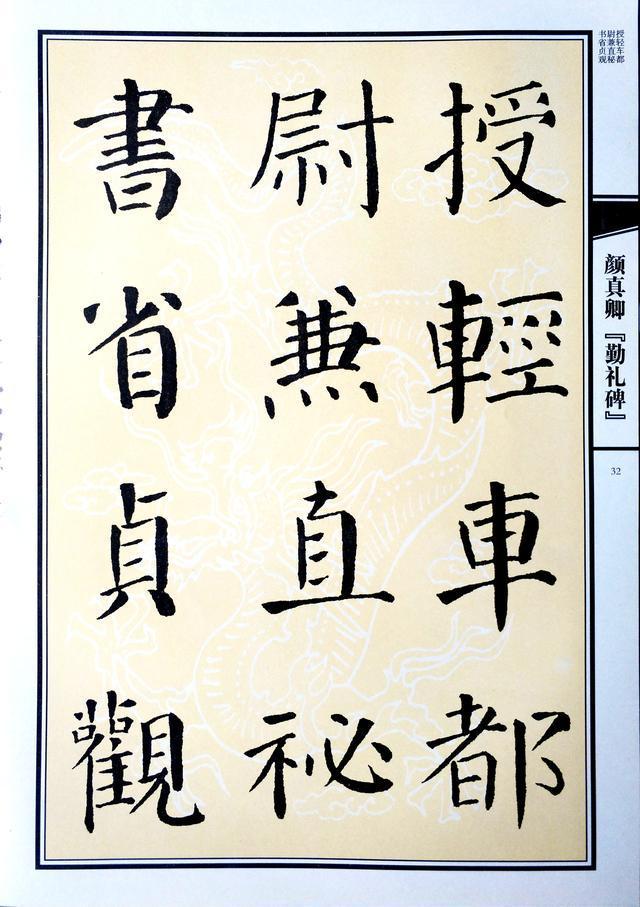 授輕車都
尉兼直祕
書省貞觀
授轻车都
尉兼直秘
书省贞观
颜真卿『勤礼碑』
32